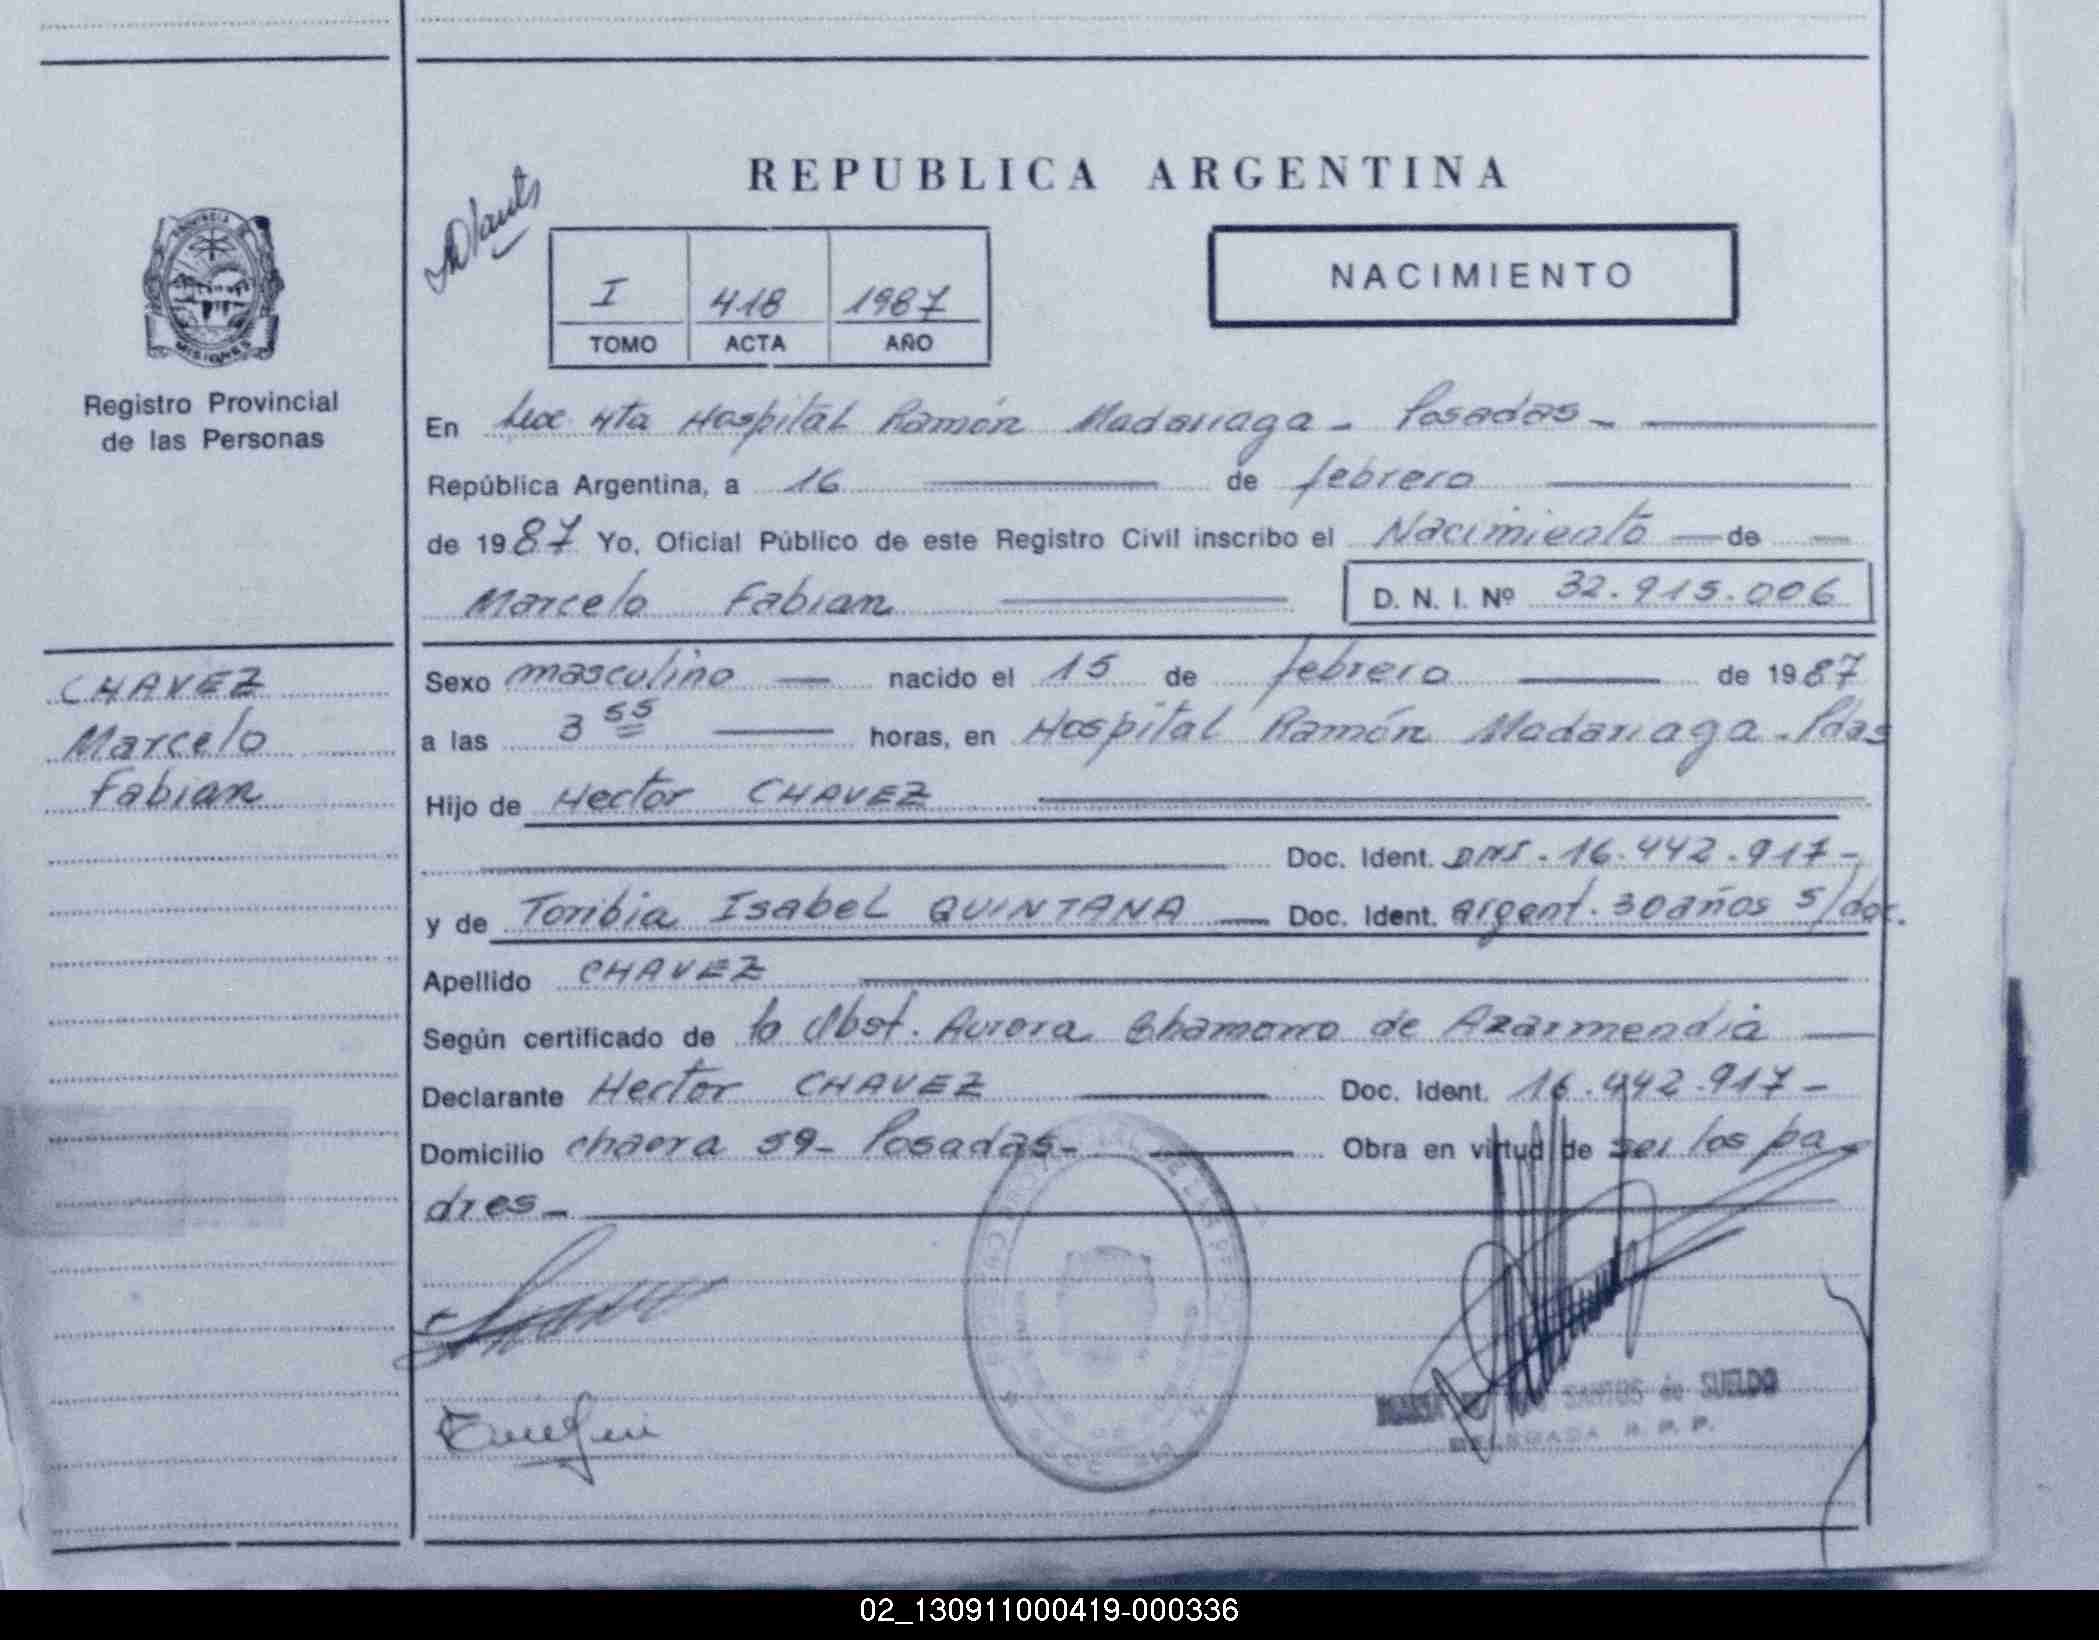 REPUBLICA ARGENTINA
PROVINCIA
MISIONES
Registro Provincial
de las Personas
I 418 1987
TOMO ACTA AÑO
NACIMIENTO
En 4ta Hospital Ramón Madariaga - Posadas -
República Argentina, a 16 de febrero
de 1987 Yo, Oficial Público de este Registro Civil inscribo el Nacimiento de
Marcelo Fabian D. N. I. Nº 32.915.006
CHAVEZ
Marcelo
Fabian
Sexo masculino nacido el 15 de febrero de 1987
a las 3 55 horas, en Hospital Ramón Madariaga - Pdas
Hijo de Hector CHAVEZ
Doc. Ident. DNI - 16.442.917 -
y de Toribia Isabel QUINTANA Doc. Ident. argent. 30 años s/doc.
Apellido CHAVEZ
Según certificado de la Obst. Aurora Chamorro de Azarmendia
Declarante Hector CHAVEZ Doc. Ident. 16.442.917 -
Domicilio chacra 59 - Posadas - Obra en virtud de ser los pa
dres -
SANTOS de SUELDO
DELEGADA R. P. P.
02_130911000419-000336